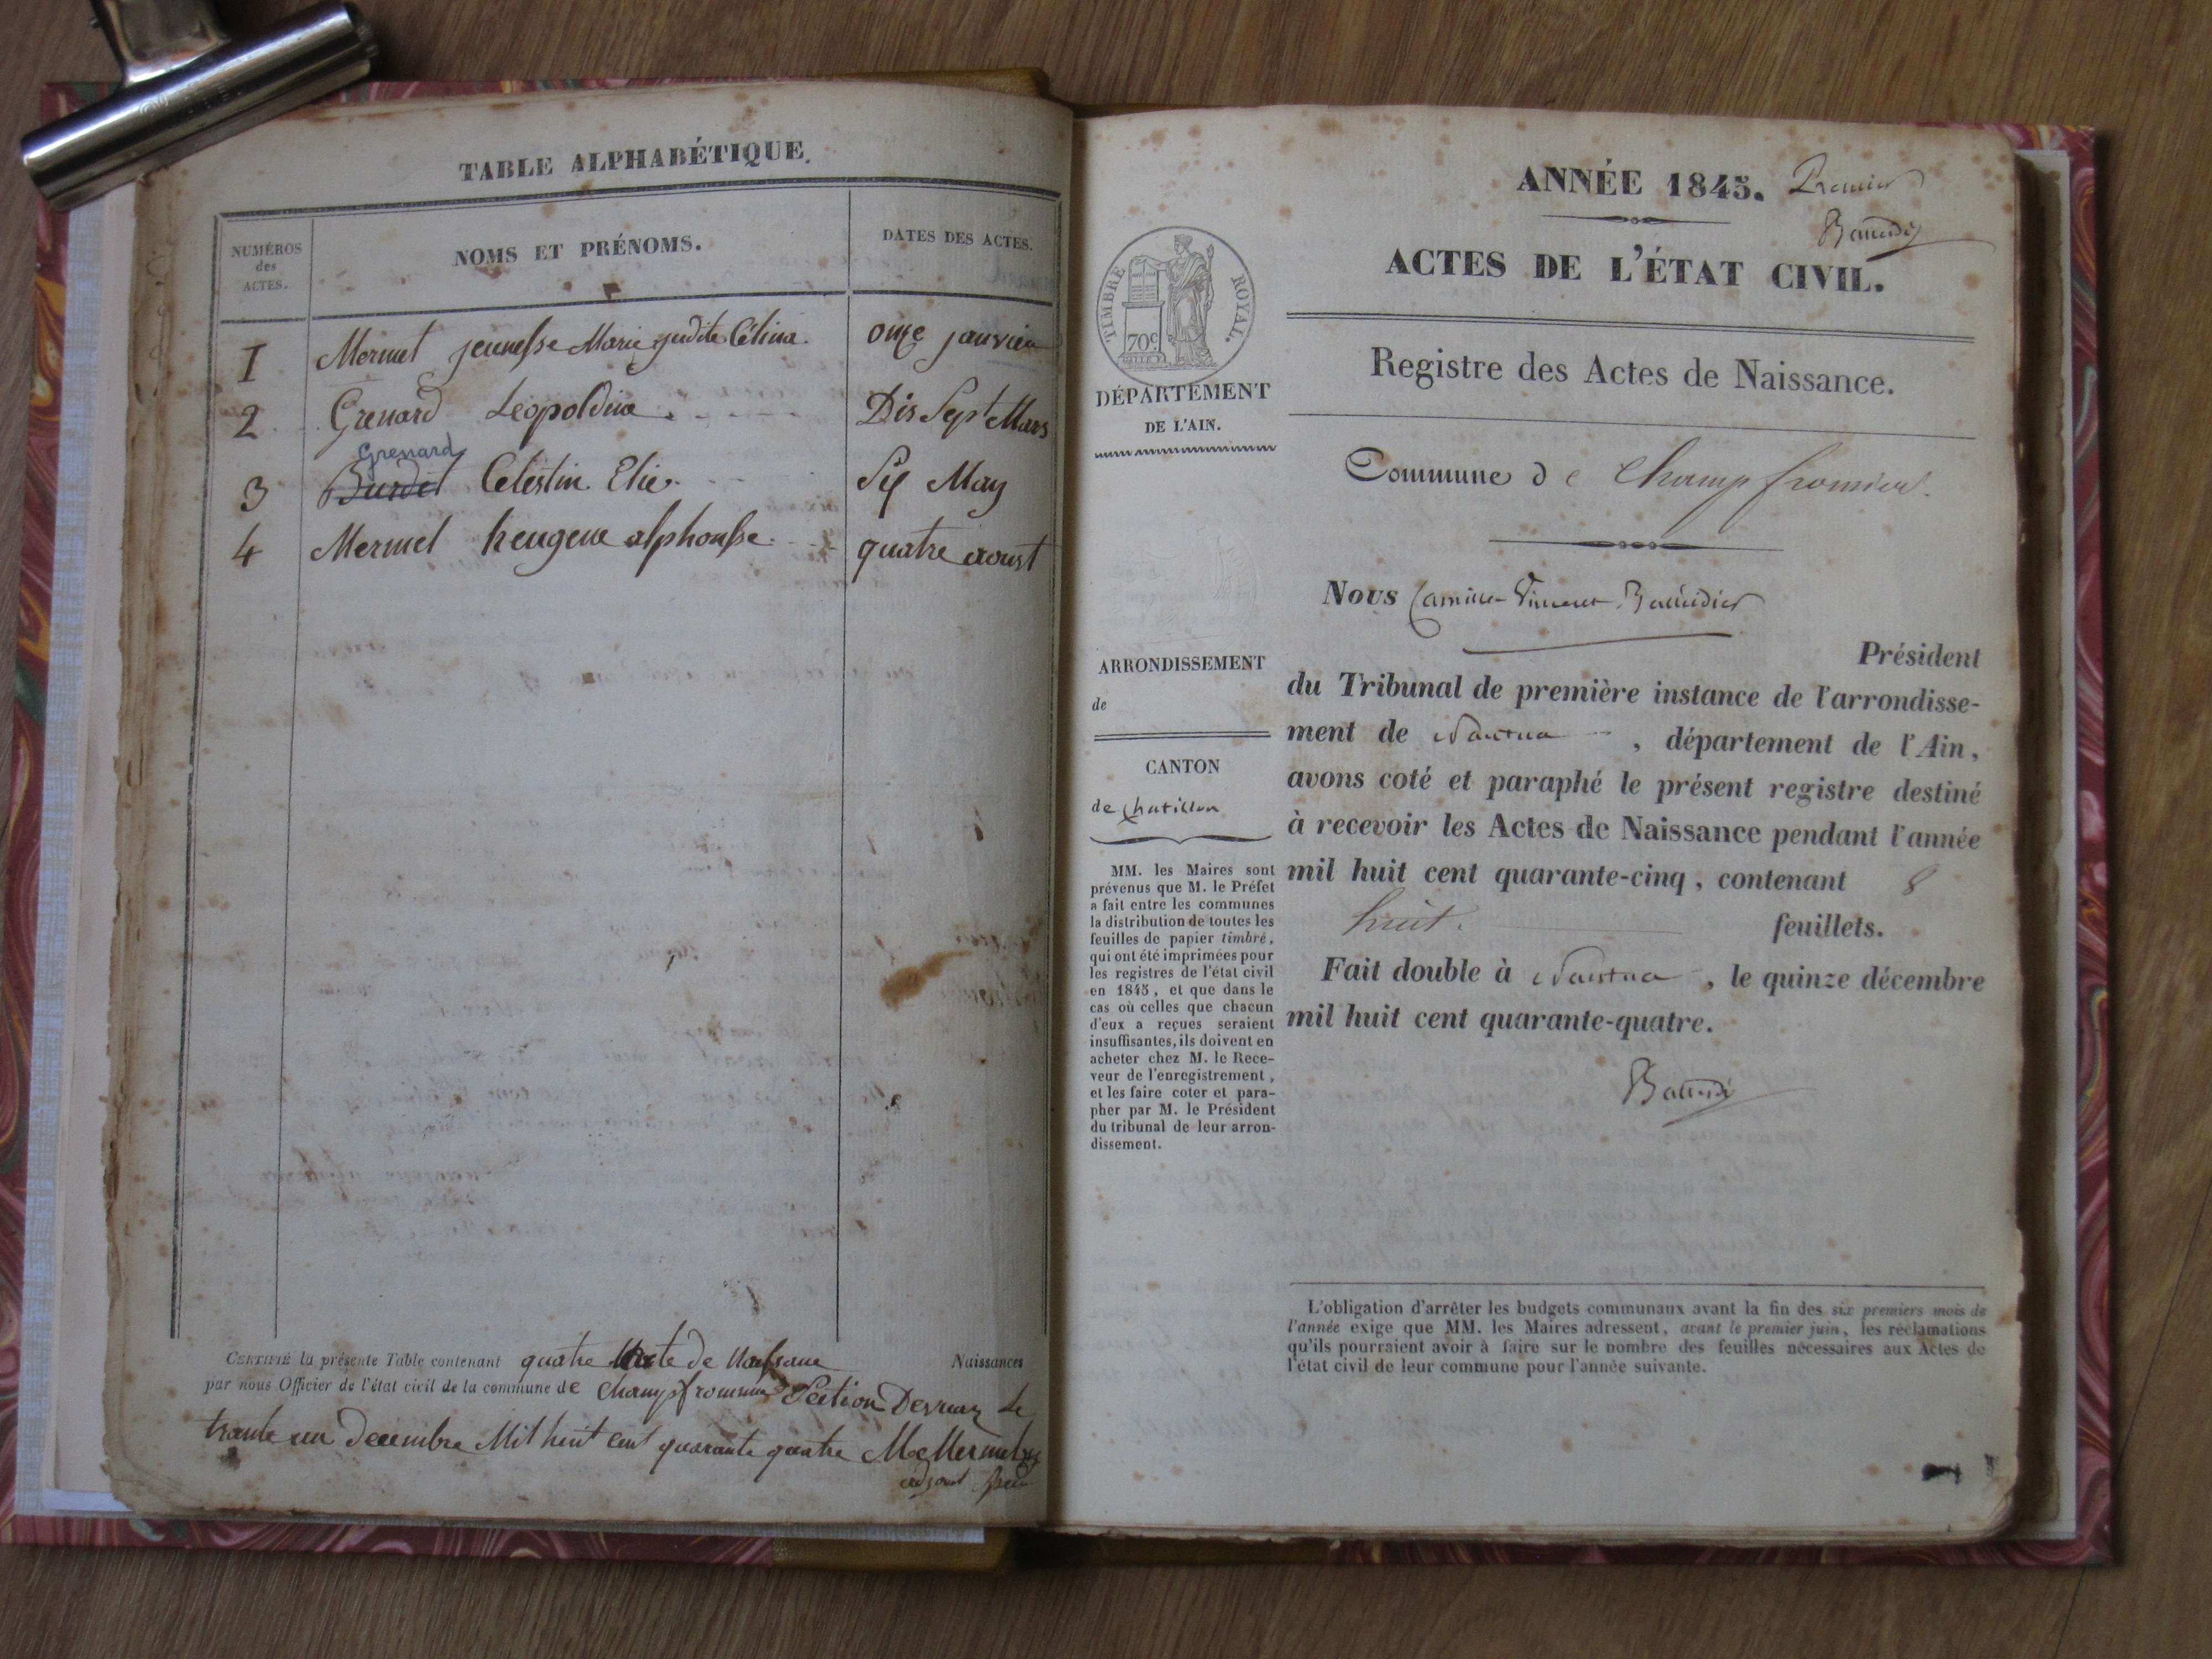 TABLE ALPHABÉTIQUE.
NUMÉROS
des
ACTES.
NOMS ET PRÉNOMS.
DATES DES ACTES.
1 Mermet jeunesse Marie judite Célina. onze janvier
2 Grenard Leopoldine Dix Sept Mars
Grenard
3 Burdet Celestin Elie. Six May
4 Mermet heugene alphonse. quatre aoust
CERTIFIÉ la présente Table contenant quatre acte de Naissance Naissances
par nous Officier de l'état civil de la commune de Champfromier Section Le
trante un decembre Mil huit cent quarante quatre Mermet
adjoint
ANNÉE 1845. Premier
ACTES DE L'ÉTAT CIVIL.
TIMBRE ROYAL.
70c
DÉPARTEMENT
DE L'AIN.
Registre des Actes de Naissance.
Commune de Champfromier.
Nous Camille Vincent Baudier
ARRONDISSEMENT
de
CANTON
de Chatillon
MM. les Maires sont
prévenus que M. le Préfet
a fait entre les communes
la distribution de toutes les
feuilles de papier timbré,
qui ont été imprimées pour
les registres de l'état civil
en 1845, et que dans le
cas où celles que chacun
d'eux a reçues seraient
insuffisantes, ils doivent en
acheter chez M. le Rece-
veur de l'enregistrement,
et les faire coter et para-
pher par M. le Président
du tribunal de leur arron-
dissement.
Président
du Tribunal de première instance de l'arrondisse-
ment de Nantua, département de l'Ain,
avons coté et paraphé le présent registre destiné
à recevoir les Actes de Naissance pendant l'année
mil huit cent quarante-cinq, contenant 8
huit. feuillets.
Fait double à Nantua, le quinze décembre
mil huit cent quarante-quatre.
L'obligation d'arrêter les budgets communaux avant la fin des six premiers mois de
l'année exige que MM. les Maires adressent, avant le premier juin, les réclamations
qu'ils pourraient avoir à faire sur le nombre des feuilles nécessaires aux Actes de
l'état civil de leur commune pour l'année suivante.